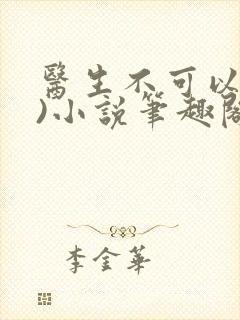 醫生不可以
)小說筆趣閣
李金華